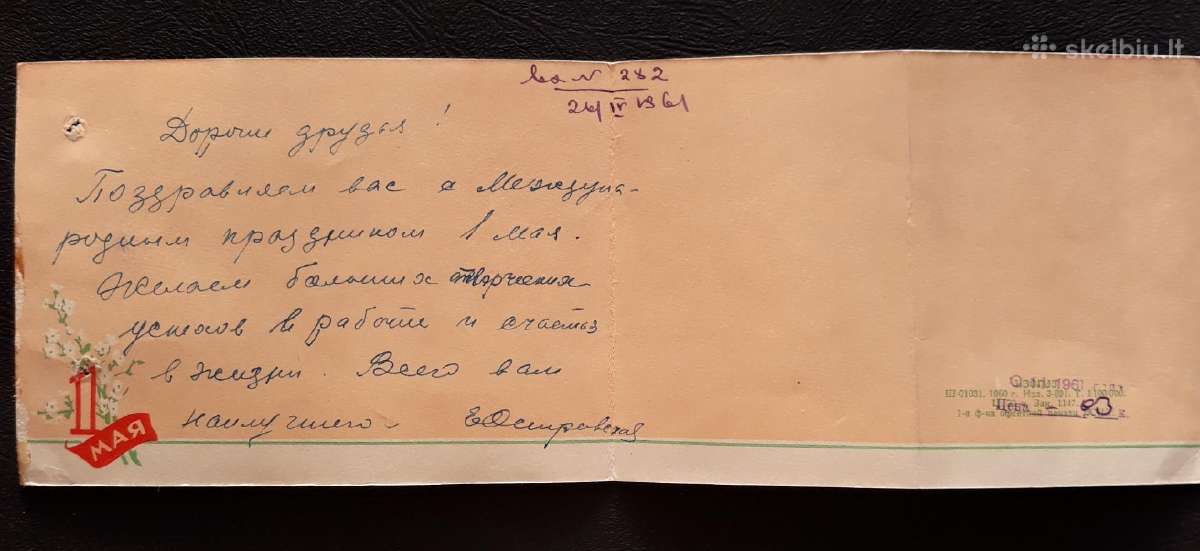 skelbiu.lt
вх N 282
24/IV 1961
Дорогие друзья!
Поздравляем вас с Междуна-
родным праздником 1 мая.
Желаем больших творческих
успехов в работе и счастья
в жизни. Всего вам
наилучшего ЕОстровская
1
МАЯ
1961
Ш-01031. 1960 г.
Цена 03 к.
1-я ф-ка офсетной печати